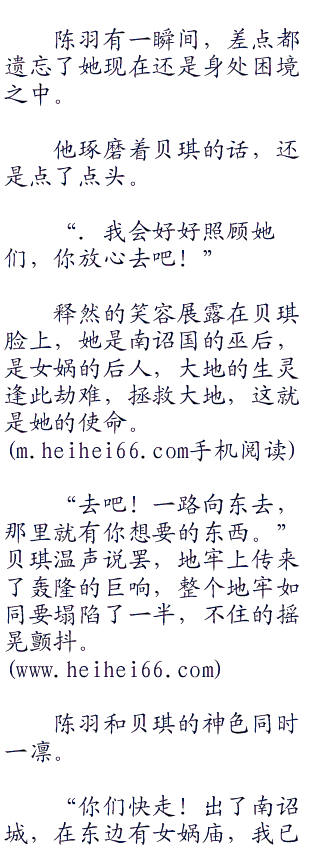 陈羽有一瞬间，差点都
遗忘了她现在还是身处困境
之中。
他琢磨着贝琪的话，还
是点了点头。
“．我会好好照顾她
们，你放心去吧！”
释然的笑容展露在贝琪
脸上，她是南诏国的巫后，
是女娲的后人，大地的生灵
逢此劫难，拯救大地，这就
是她的使命。
(m.heihei66.com手机阅读)
“去吧！一路向东去，
那里就有你想要的东西。”
贝琪温声说罢，地牢上传来
了轰隆的巨响，整个地牢如
同要塌陷了一半，不住的摇
晃颤抖。
(www.heihei66.com)
陈羽和贝琪的神色同时
一凛。
“你们快走！出了南诏
城，在东边有女娲庙，我已